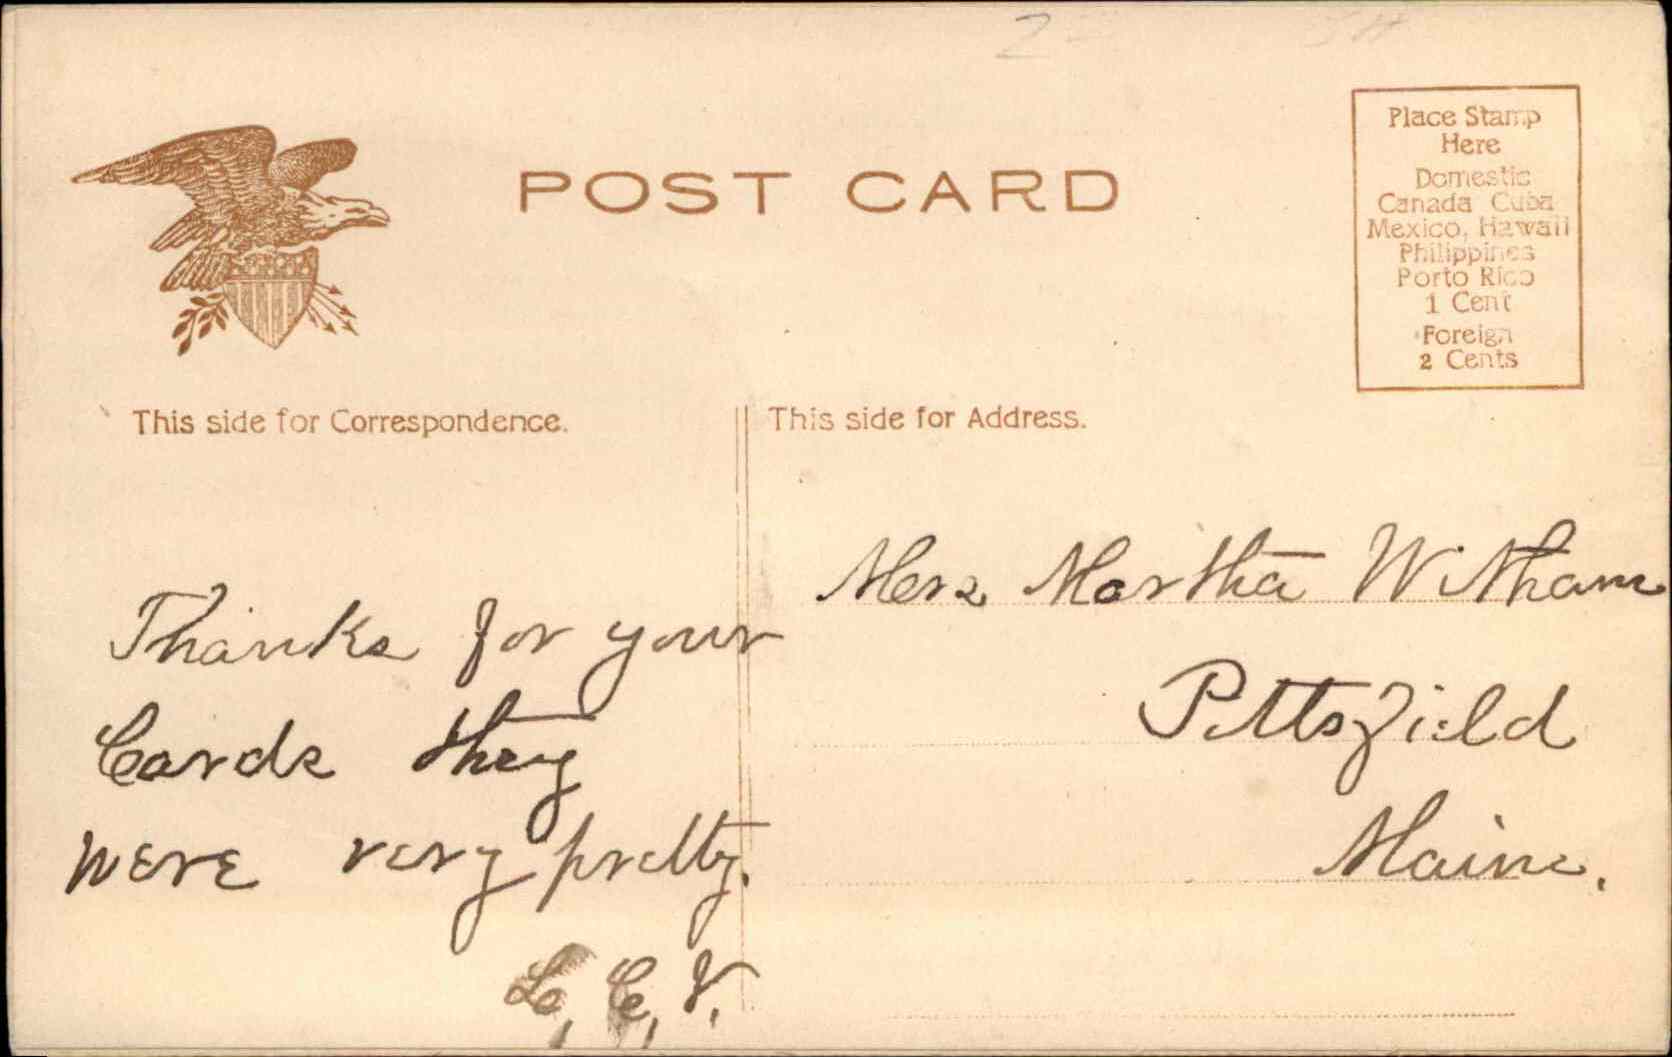 POST CARD
Place Stamp
Here
Domestic
Canada Cuba
Mexico, Hawaii
Philippines
Porto Rico
1 Cent
Foreign
2 Cents
This side for Correspondence.
This side for Address.
Thanks for your
Cards they
were very pretty.
L, C, V.
Mrs Martha Witham
Pittsfield
Maine.